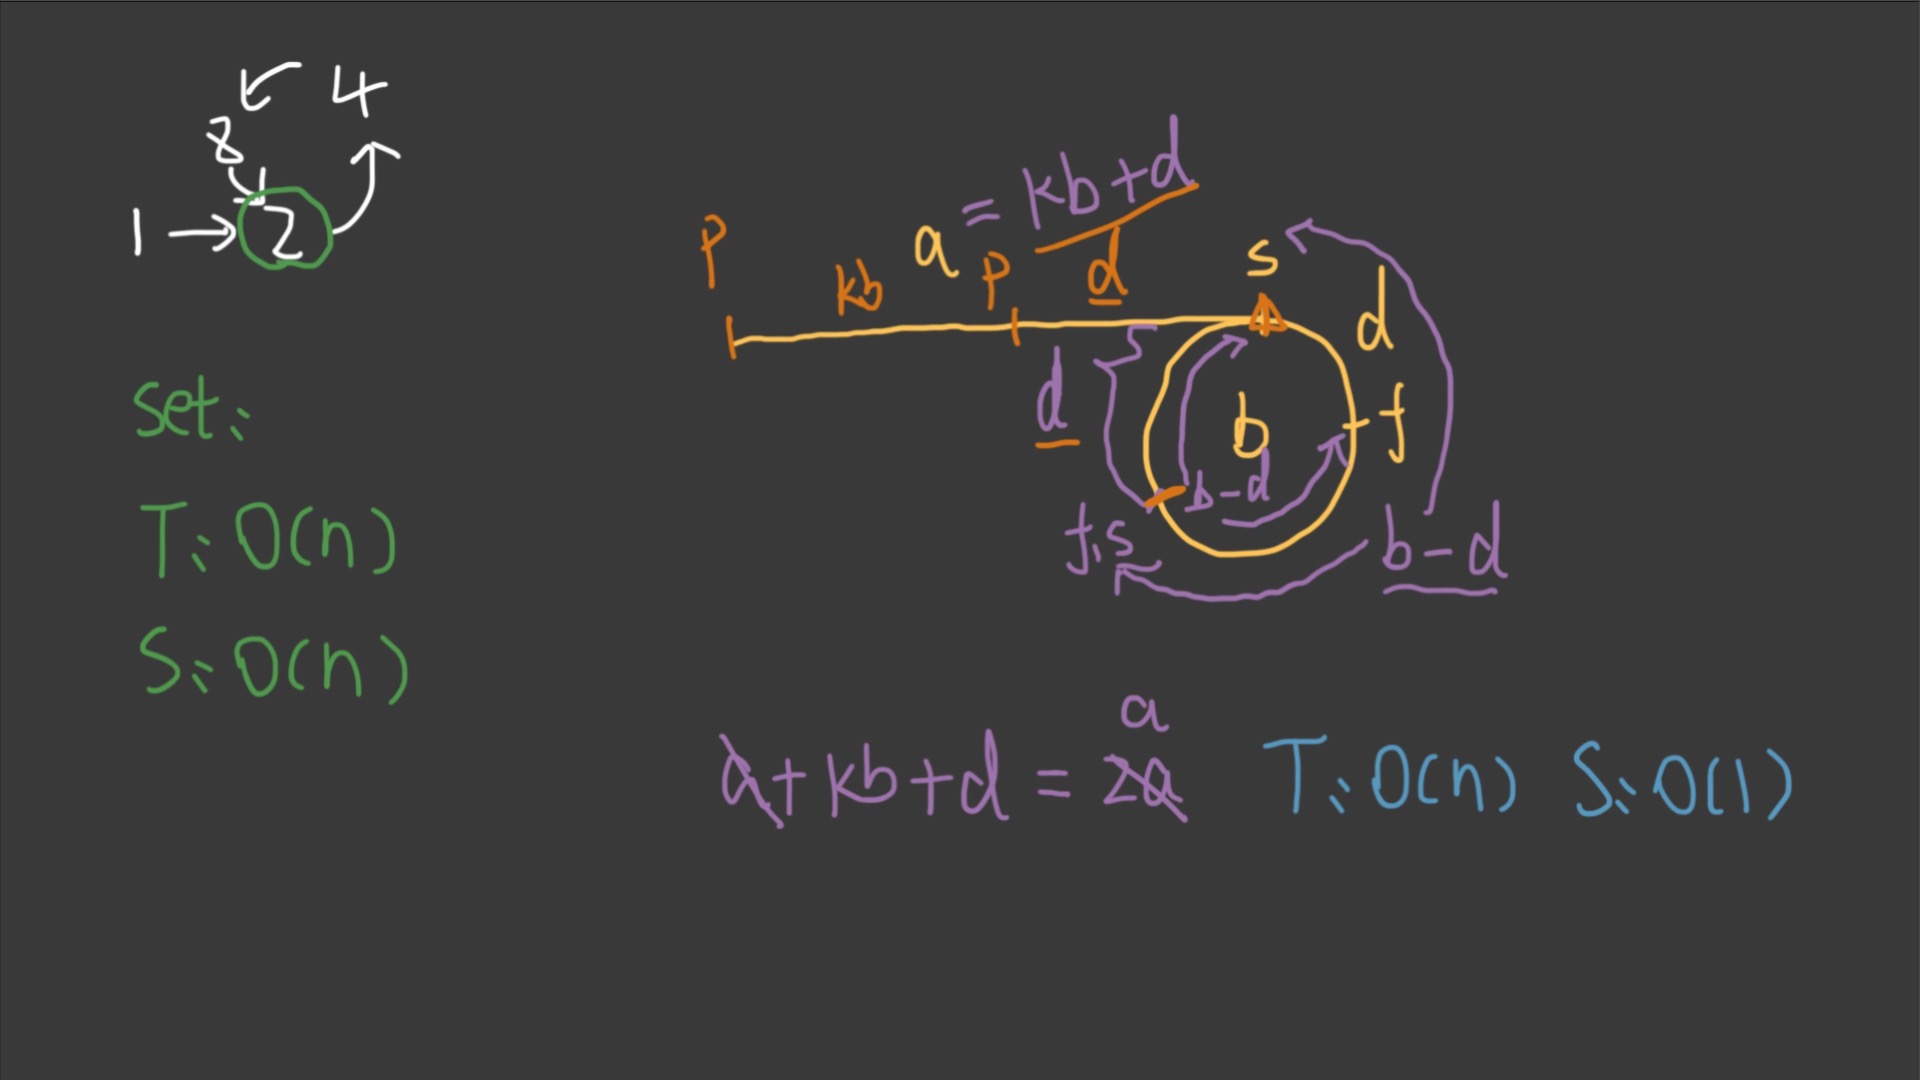 4
8
1 → 2
set:
T: O(n)
S: O(n)
a = kb+d
P
kb
P
d
s
d
d
b
f
b-d
f,s
b-d
a
a+kb+d = 2a
T: O(n) S: O(1)